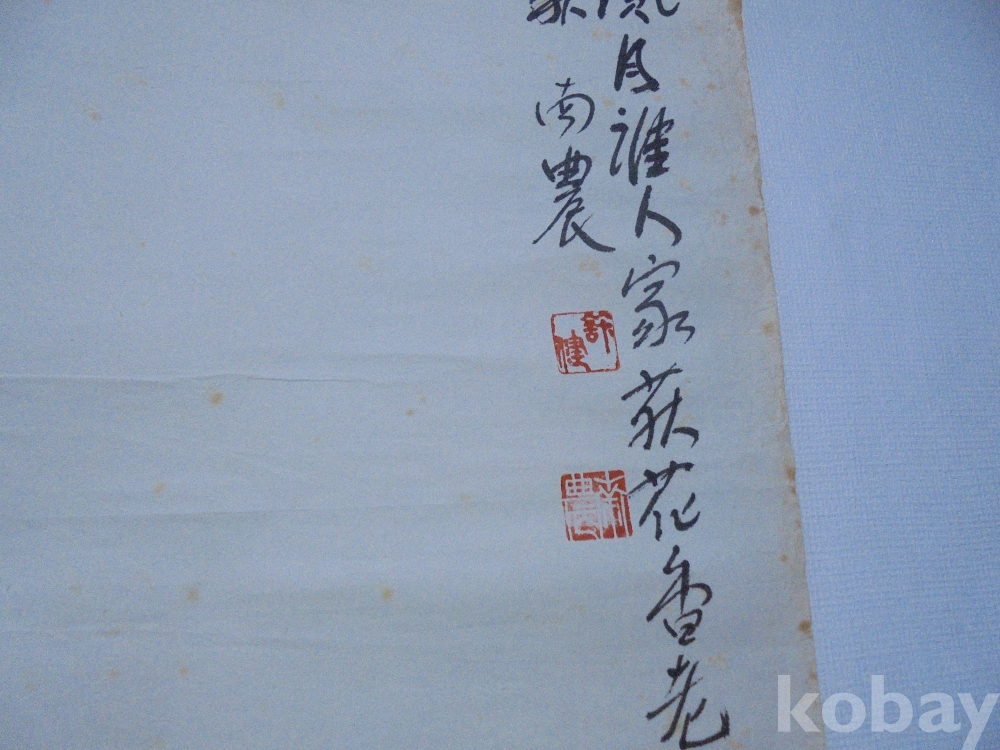 風月誰人家荻花香老
南農
許健
南農
kobay